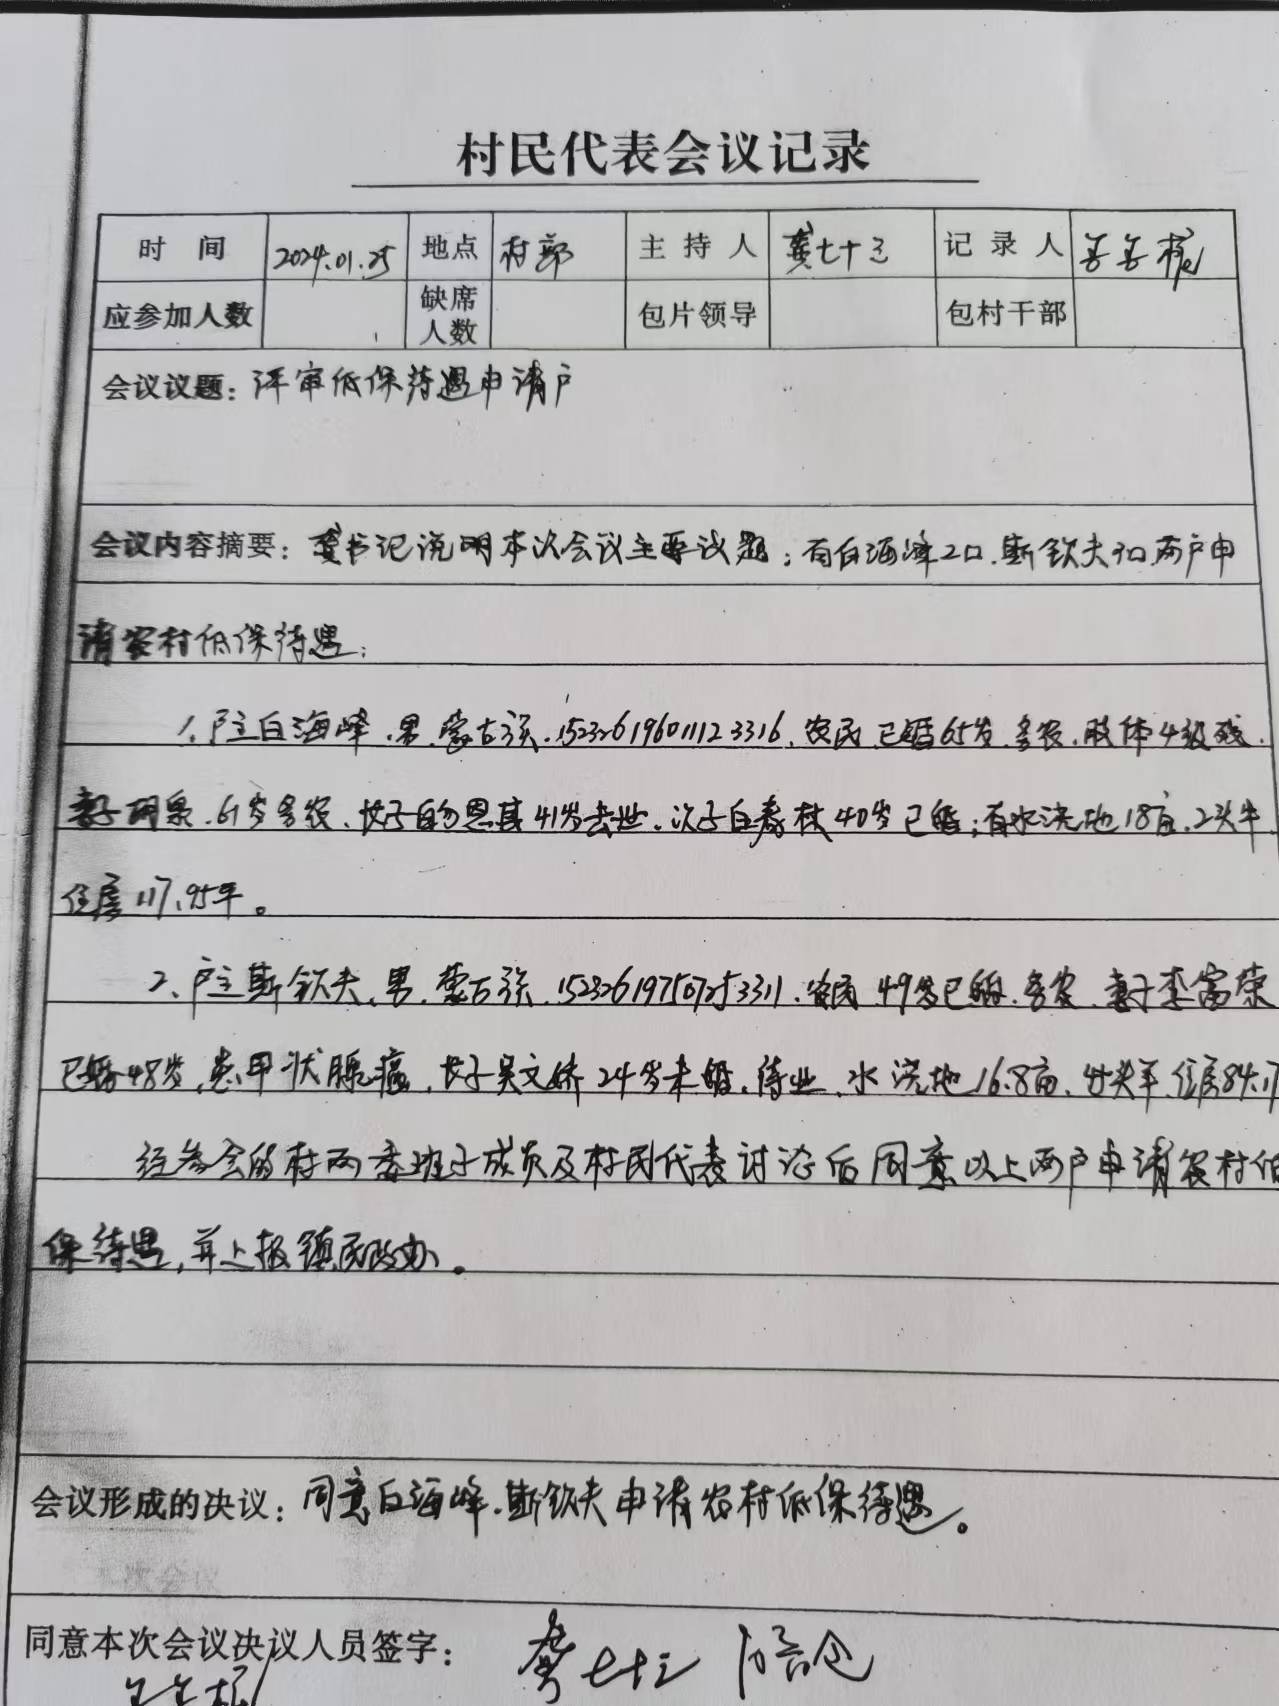 村民代表会议记录
时间 2024.01.25 地点 村部 主持人 龚七十三 记录人
应参加人数 缺席人数 包片领导 包村干部
会议议题：评审低保待遇申请户
会议内容摘要：龚书记说明本次会议主要议题：有白海峰2口、斯钦夫3口两户申
请农村低保待遇；
1、户主白海峰、男、蒙古族、152326196011123316、农民、已婚65岁、务农、肢体4级残、
妻子 61岁务农、长子白 41岁去世、次子白春林40岁已婚；有水浇地18亩、2头牛
住房117.95平。
2、户主斯钦夫、男、蒙古族、152326197507253311、农民、49岁已婚、务农、妻子李富荣
已婚48岁、患甲状腺癌、长子吴文娇24岁未婚、待业、水浇地16.8亩、 住房84.17
经参会的村两委班子成员及村民代表讨论后同意以上两户申请农村低
保待遇，并上报镇民政办。
会议形成的决议：同意白海峰、斯钦夫申请农村低保待遇。
同意本次会议决议人员签字： 龚七十三